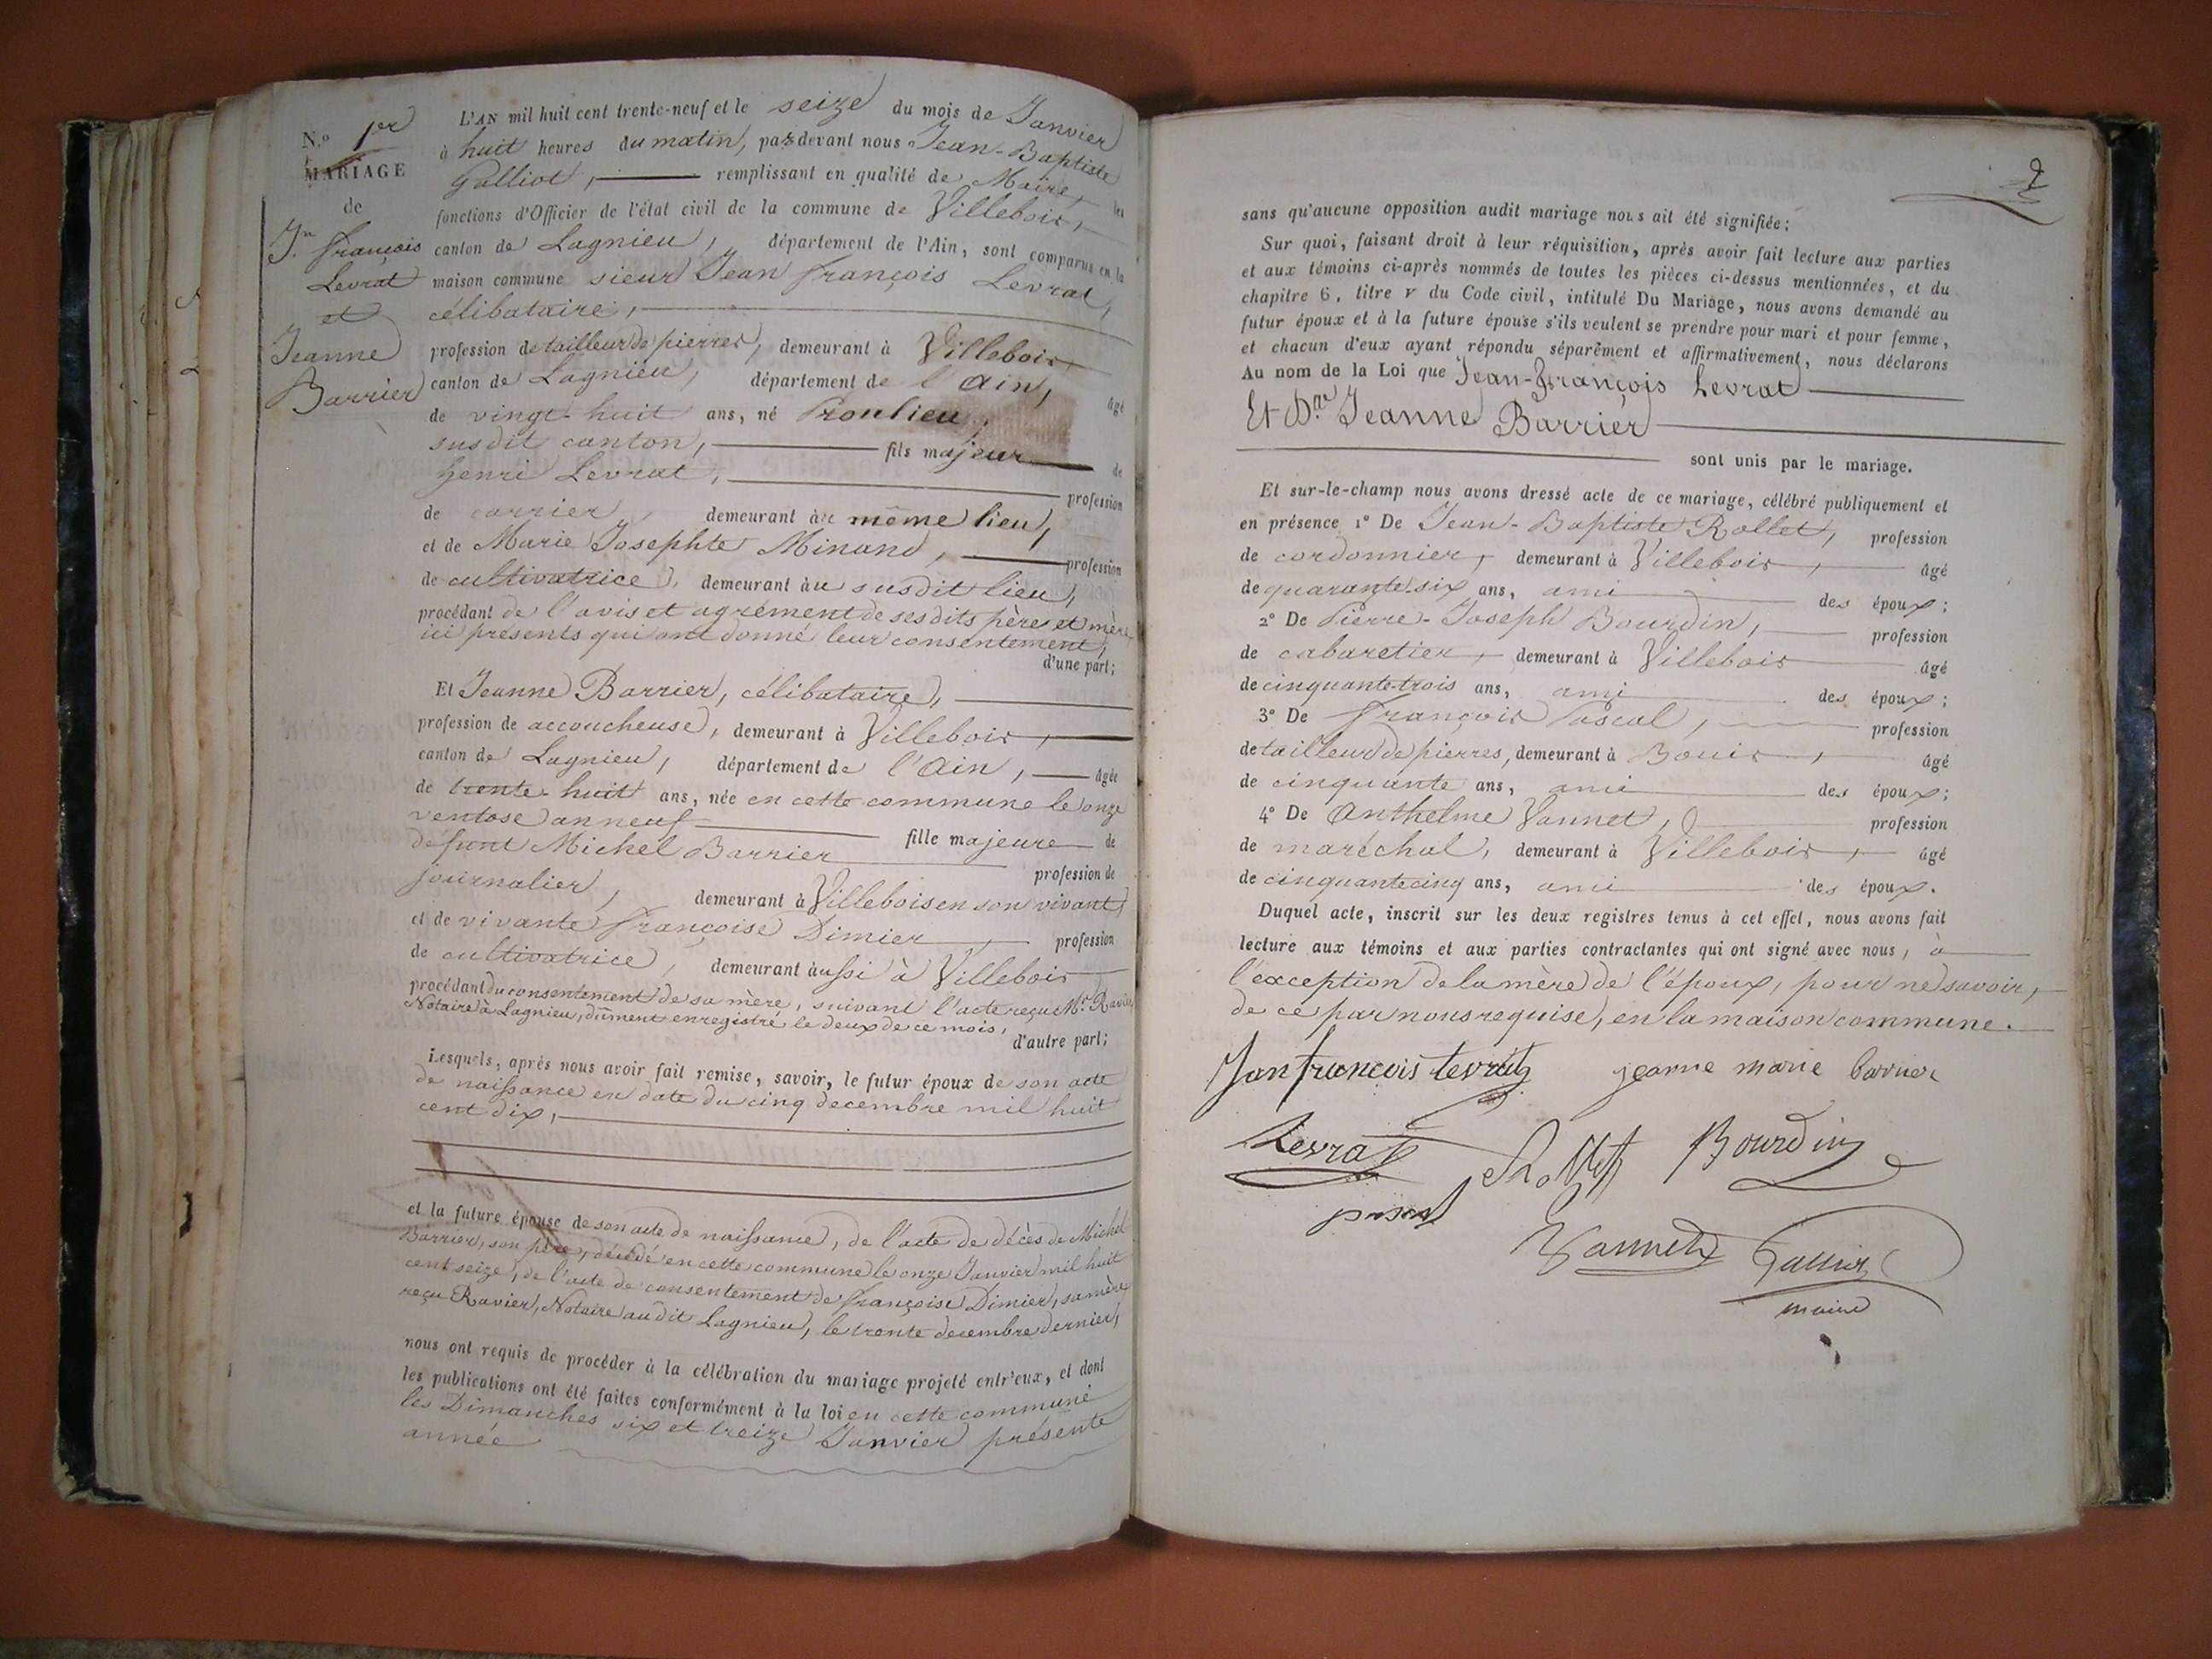 N.o 1er
MARIAGE
de
Jn. françois
Levrat
et
Jeanne
Barrier
L'AN mil huit cent trente-neuf et le seize du mois de Janvier
à huit heures du matin, pardevant nous Jean-Baptiste
Galliot, remplissant en qualité de Maire, les
fonctions d'Officier de l'état civil de la commune de Villebois,
canton de Lagnieu, département de l'Ain, sont comparus en la
maison commune sieur Jean françois Levrat,
célibataire,
profession de tailleur de pierres, demeurant à Villebois
canton de Lagnieu, département de l'Ain, âgé
de vingt-huit ans, né Proulieu,
susdit canton, fils majeur de
henri Levrat, profession
de carrier, demeurant au même lieu,
et de Marie Josephte Minand, profession
de cultivatrice, demeurant au susdit lieu,
procédant de l'avis et agrément de ses dits père et mère
ici présents qui ont donné leur consentement,
d'une part;
Et Jeanne Barrier, célibataire,
profession de accoucheuse, demeurant à Villebois,
canton de Lagnieu, département de l'Ain, âgée
de trente-huit ans, née en cette commune le onze
ventose an neuf fille majeure de
défunt Michel Barrier profession de
journalier, demeurant à Villebois en son vivant
et de vivante françoise Dimier, profession
de cultivatrice, demeurant aussi à Villebois
procédant du consentement de sa mère, suivant l'acte reçu Me. Ravier
Notaire à Lagnieu, dûment enregistré le deux de ce mois,
d'autre part;
Lesquels, après nous avoir fait remise, savoir, le futur époux de son acte
de naissance en date du cinq decembre mil huit
cent dix,
et la future épouse de son acte de naissance, de l'acte de décès de Michel
Barrier, son père, décédé en cette commune le onze Janvier mil huit
cent seize, de l'acte de consentement de françoise Dimier, sa mère
reçu Ravier, Notaire audit Lagnieu, le trente decembre dernier,
nous ont requis de procéder à la célébration du mariage projeté entr'eux, et dont
les publications ont été faites conformément à la loi en cette commune
les Dimanches six et treize Janvier présente
année
2
sans qu'aucune opposition audit mariage nous ait été signifiée;
Sur quoi, faisant droit à leur réquisition, après avoir fait lecture aux parties
et aux témoins ci-après nommés de toutes les pièces ci-dessus mentionnées, et du
chapitre 6, titre v du Code civil, intitulé Du Mariage, nous avons demandé au
futur époux et à la future épouse s'ils veulent se prendre pour mari et pour femme,
et chacun d'eux ayant répondu séparément et affirmativement, nous déclarons
Au nom de la Loi que Jean-François Levrat
Et Dlle Jeanne Barrier
sont unis par le mariage.
Et sur-le-champ nous avons dressé acte de ce mariage, célébré publiquement et
en présence 1° De Jean-Baptiste Rollet, profession
de cordonnier, demeurant à Villebois, âgé
de quarante-six ans, ami des époux;
2° De Pierre-Joseph Bourdin, profession
de cabaretier, demeurant à Villebois âgé
de cinquante-trois ans, ami des époux;
3° De françois Pascal, profession
de tailleur de pierres, demeurant à Bouis, âgé
de cinquante ans, ami des époux;
4° De Anthelme Vannet, profession
de maréchal, demeurant à Villebois, âgé
de cinquante cinq ans, ami des époux.
Duquel acte, inscrit sur les deux registres tenus à cet effet, nous avons fait
lecture aux témoins et aux parties contractantes qui ont signé avec nous, à
l'exception de la mère de l'époux, pour ne savoir,
de ce par nous requise, en la maison commune.
Jan francois levrat jeanne marie barrier
Levrat Rollet Bourdin
pascal
Vannet Galliot
maire